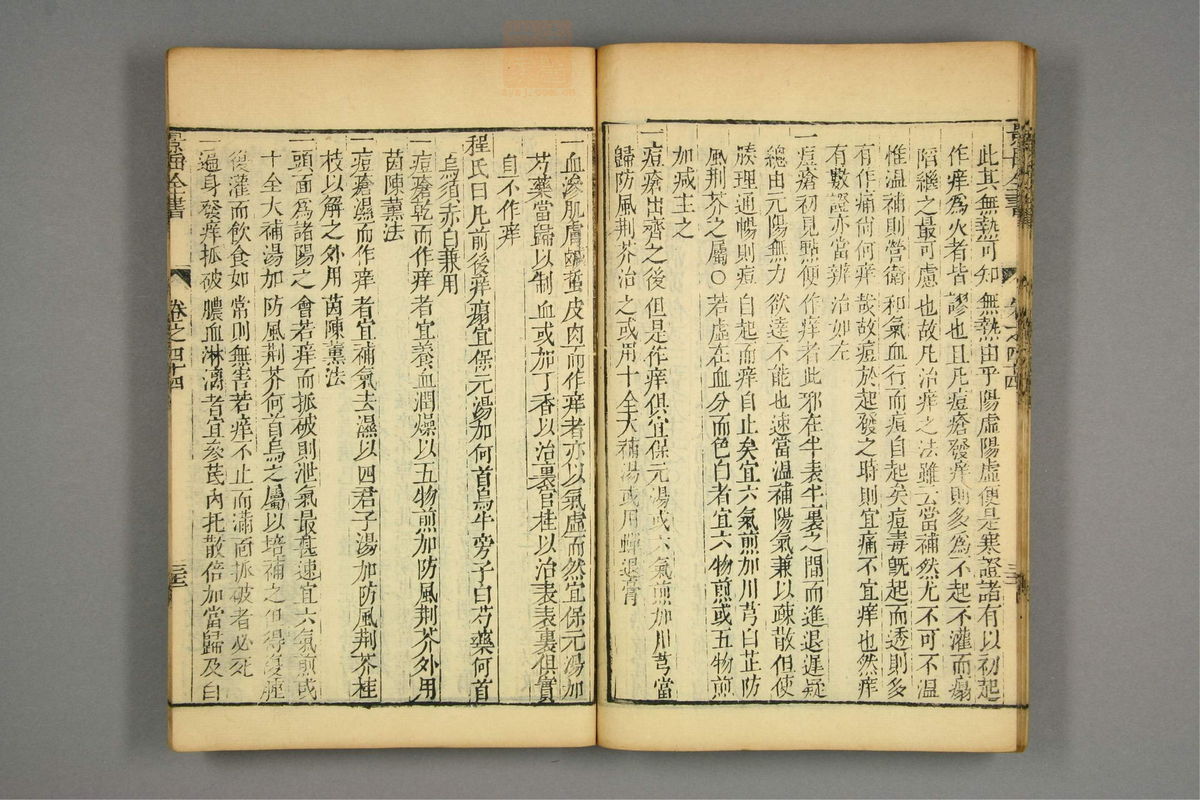 此其無熱可知無熱由乎陽虛陽虛便是寒證諸有以初起
作痒為火者皆謬也且凡痘瘡發痒則多為不起不灌而塌
陷繼之最可慮也故凡治痒之法雖云當補然尤不可不溫
惟溫補則營衛和氣血行而痘自起矣痘毒旣起而透則多
有作痛尚何痒哉故痘於起發之時則宜痛不宜痒也然痒
有數證亦當辨治如左
一痘瘡初見點便作痒者此邪在半表半裏之間而進退遲疑
總由元陽無力欲達不能也速當溫補陽氣兼以疎散但使
腠理通暢則痘自起而痒自止矣宜六氣煎加川芎白芷防
風荆芥之屬○若虛在血分而色白者宜六物煎或五物煎
加減主之
一痘瘡出齊之後但是作痒俱宜保元湯或六氣煎加川芎當
歸防風荆芥治之或用十全大補湯或用蟬退膏
景岳全書
卷之四十四
三十
一血滲肌膚鹹蜇皮肉而作痒者亦以氣虛而然宜保元湯加
芍藥當歸以制血或加丁香以治裏官桂以治表表裏俱實
自不作痒
程氏曰凡前後痒塌宜保元湯加何首烏牛旁子白芍藥何首
烏須赤白兼用
一痘瘡乾而作痒者宜養血潤燥以五物煎加防風荆芥外用
茵陳薰法
一痘瘡濕而作痒者宜補氣去濕以四君子湯加防風荆芥桂
枝以解之外用茵陳薰法
一頭面為諸陽之會若痒而抓破則泄氣最甚速宜六氣煎或
十全大補湯加防風荆芥何首烏之屬以培補之但得復腫
復灌而飲食如常則無害若痒不止而滿面抓破者必死
一遍身發痒抓破膿血淋漓者宜參芪內托散倍加當歸及白
景岳全書
卷之四十四